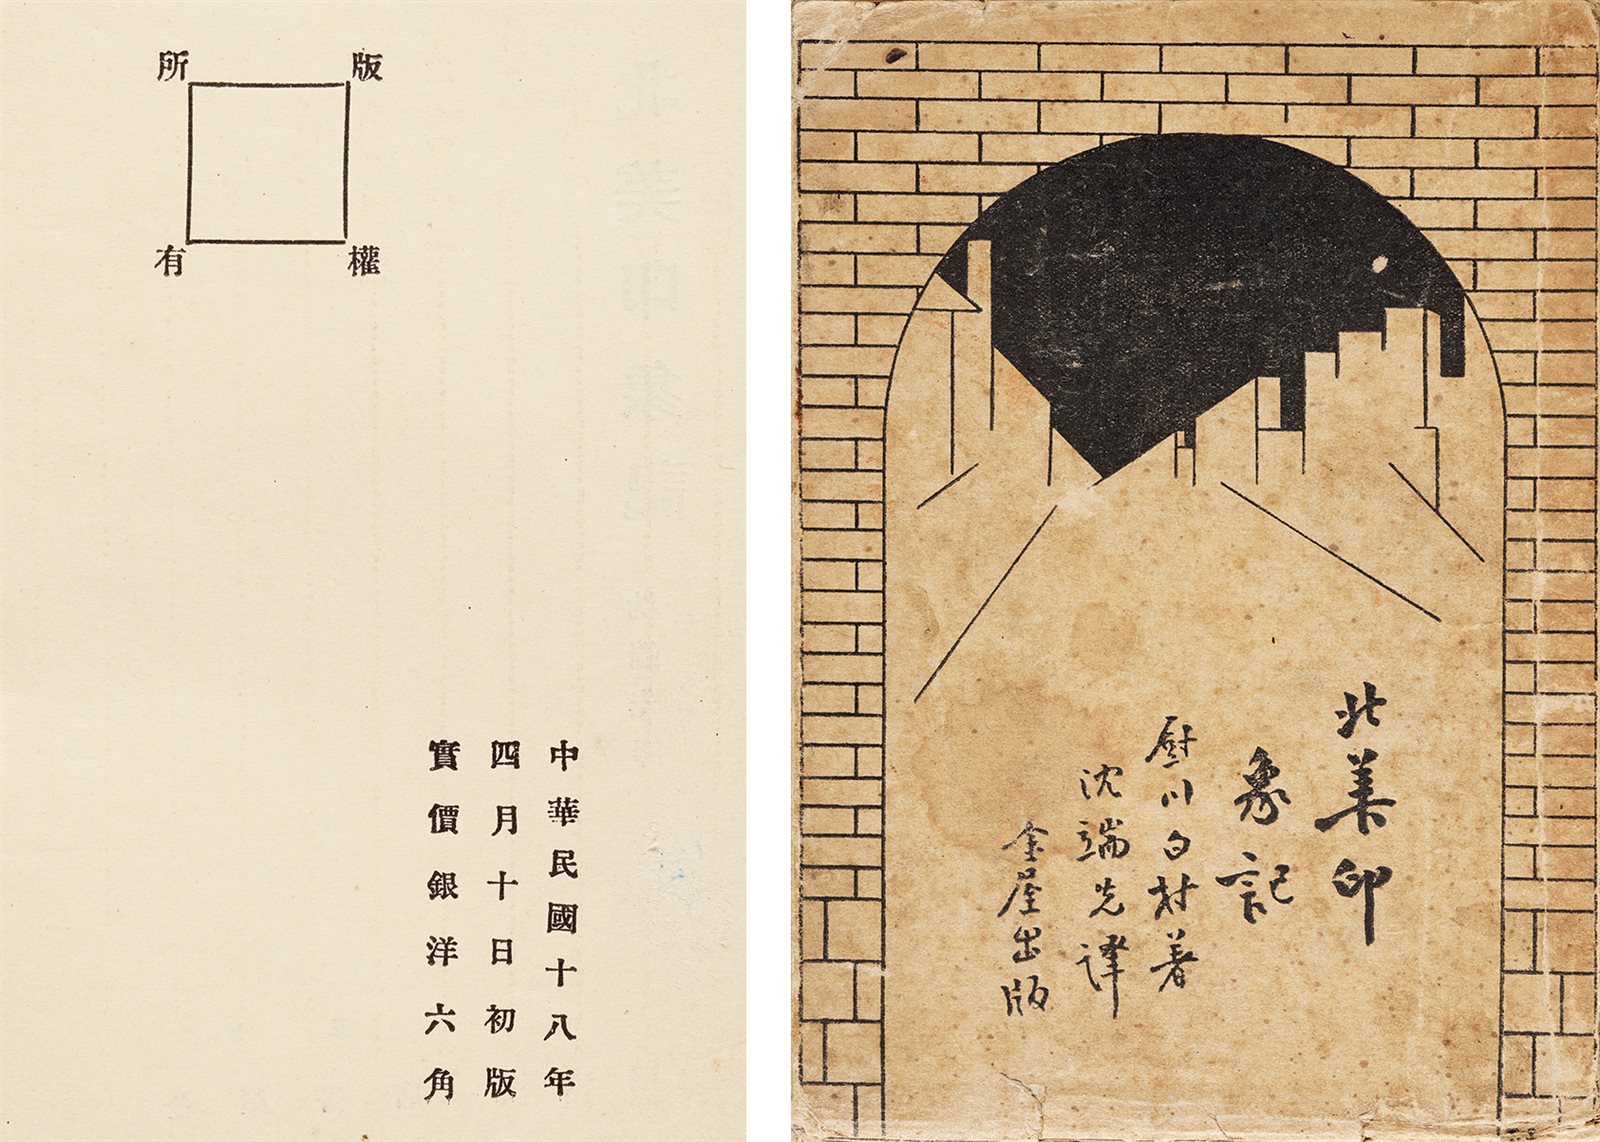 版權所有
中華民國十八年
四月十日初版
實價銀洋六角
北美印
象記
厨川白村著
沈端先譯
金屋出版